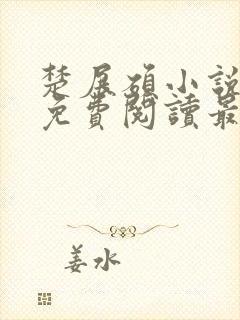 楚展碩小說
免費閱讀最
姜水